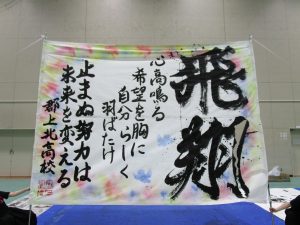 飛翔
心高鳴る
希望を胸に
自分らしく
羽ばたけ
止まぬ努力は
未来を変える
郡上北高校